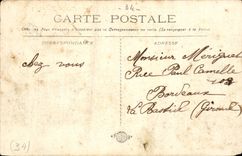 84
CARTE POSTALE
CORRESPONDANCE
ADRESSE
chez vous
Monsieur Mériguet
Rue Paul Camelle
Bordeaux
La Bastid (Gironde)
(34)